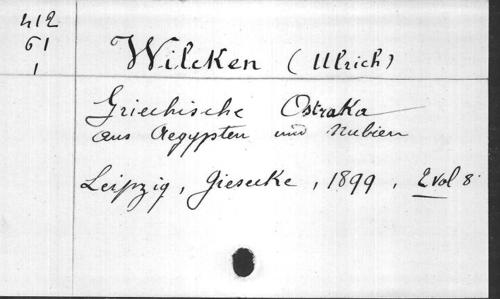 412
61
1
Wilcken (Ulrich)
Griechische Ostraka
aus Aegypten und Nubien
Leipzig, Giesecke, 1899, 2 vol 8°